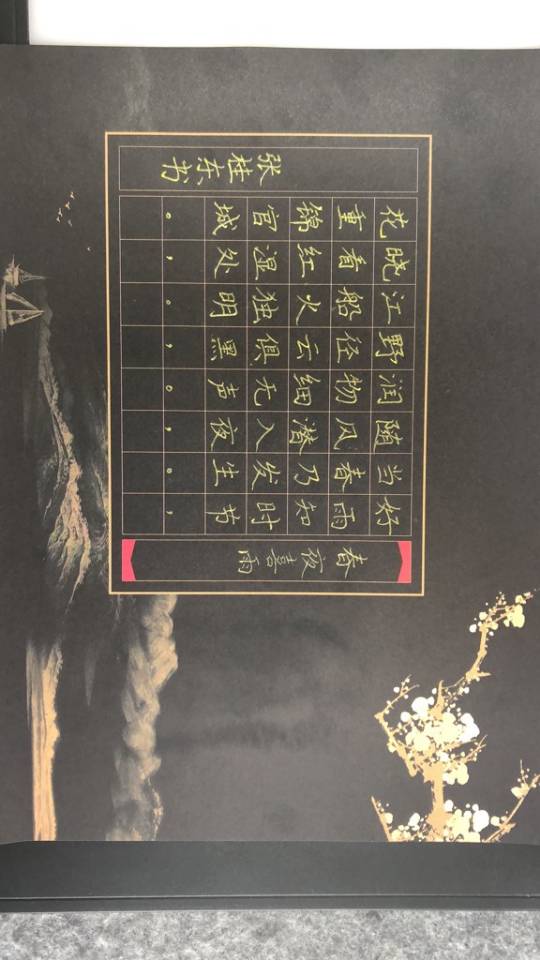 春夜喜雨
好雨知时节，
当春乃发生。
随风潜入夜，
润物细无声。
野径云俱黑，
江船火独明。
晓看红湿处，
花重锦官城。
张桂东书